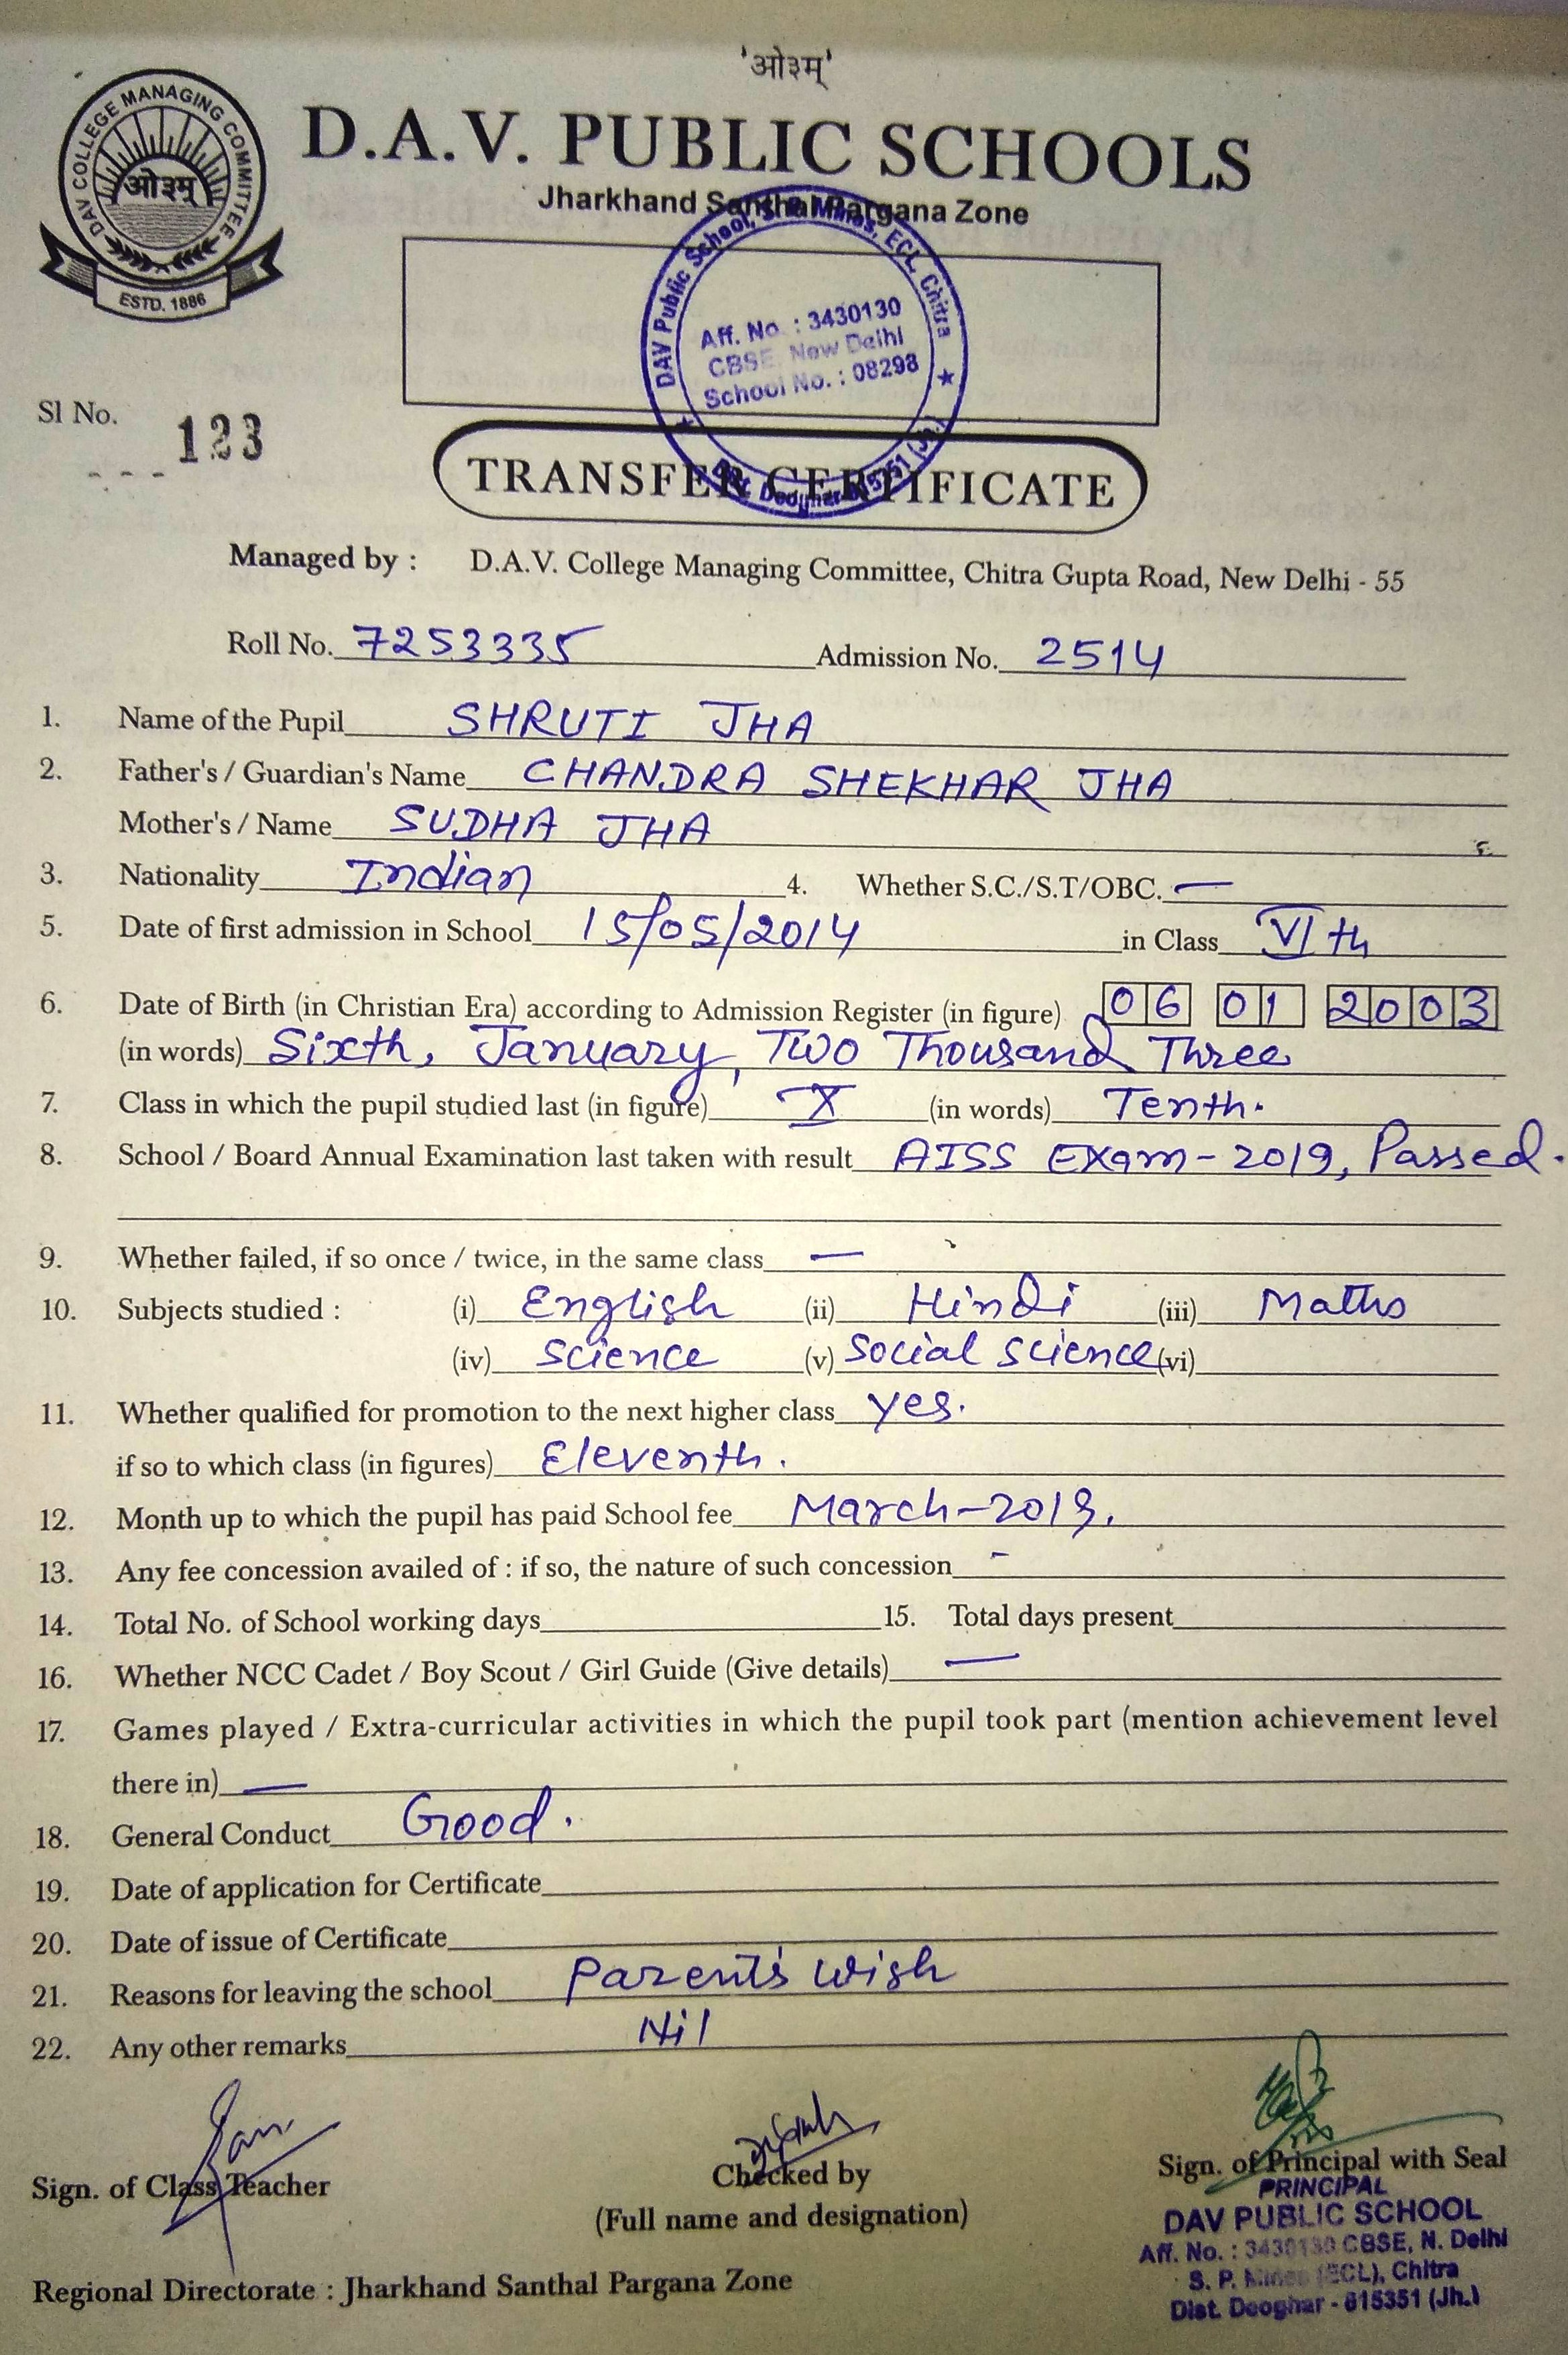 'ओ३म्'
DAV COLLEGE MANAGING COMMITTEE
ओ३म्
ESTD. 1886
D.A.V. PUBLIC SCHOOLS
Jharkhand Santhal Pargana Zone
DAV Public School, S.P. Mines, ECL, Chitra
Aff. No. : 3430130
CBSE, New Delhi
School No. : 08298
Dist. Deoghar-815351 (Jh.)
Sl No. 123
TRANSFER CERTIFICATE
Managed by : D.A.V. College Managing Committee, Chitra Gupta Road, New Delhi - 55
Roll No. 7253335 Admission No. 2514
1. Name of the Pupil SHRUTI JHA
2. Father's / Guardian's Name CHANDRA SHEKHAR JHA
Mother's / Name SUDHA JHA
3. Nationality Indian 4. Whether S.C./S.T/OBC. —
5. Date of first admission in School 15/05/2014 in Class VI th
6. Date of Birth (in Christian Era) according to Admission Register (in figure) 06 01 2003
(in words) Sixth, January, Two Thousand Three
7. Class in which the pupil studied last (in figure) X (in words) Tenth.
8. School / Board Annual Examination last taken with result AISS Exam-2019, Passed.
9. Whether failed, if so once / twice, in the same class —
10. Subjects studied : (i) English (ii) Hindi (iii) Maths
(iv) Science (v) Social Science (vi)
11. Whether qualified for promotion to the next higher class Yes.
if so to which class (in figures) Eleventh.
12. Month up to which the pupil has paid School fee March-2019.
13. Any fee concession availed of : if so, the nature of such concession -
14. Total No. of School working days 15. Total days present
16. Whether NCC Cadet / Boy Scout / Girl Guide (Give details) —
17. Games played / Extra-curricular activities in which the pupil took part (mention achievement level
there in) —
18. General Conduct Good.
19. Date of application for Certificate
20. Date of issue of Certificate
21. Reasons for leaving the school Parent's Wish
22. Any other remarks Nil
Sign. of Class Teacher Checked by Sign. of Principal with Seal
(Full name and designation)
PRINCIPAL
DAV PUBLIC SCHOOL
Aff. No. : 3430130 CBSE, N. Delhi
S. P. Mines (ECL), Chitra
Dist. Deoghar - 815351 (Jh.)
Regional Directorate : Jharkhand Santhal Pargana Zone